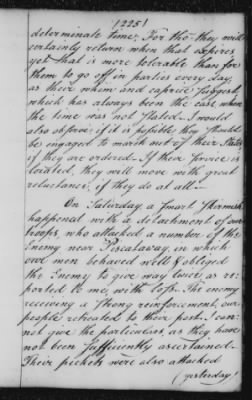 (225)
determinate time; For tho' they will
certainly return when that expires,
yet that is more tolerable than for
them to go off in parties every day,
as their whim and caprice suggest,
which has always been the case when
the time was not stated. I would
also observe; if it is possible they should
be engaged to march out of their State
if they are ordered. If their service is
located, they will move with great
reluctance, if they do at all.—
On Saturday a smart skirmish
happened with a detachment of our
troops, who attacked a number of the
Enemy near Piscataway, in which
our men behaved well & obliged
the Enemy to give way twice, as re=
ported to me, with loss. The enemy
receiving a strong reinforcement, our
people retreated to their post. I can=
not give the particulars, as they have
not been sufficiently ascertained.
Their pickets were also attacked
(yesterday)